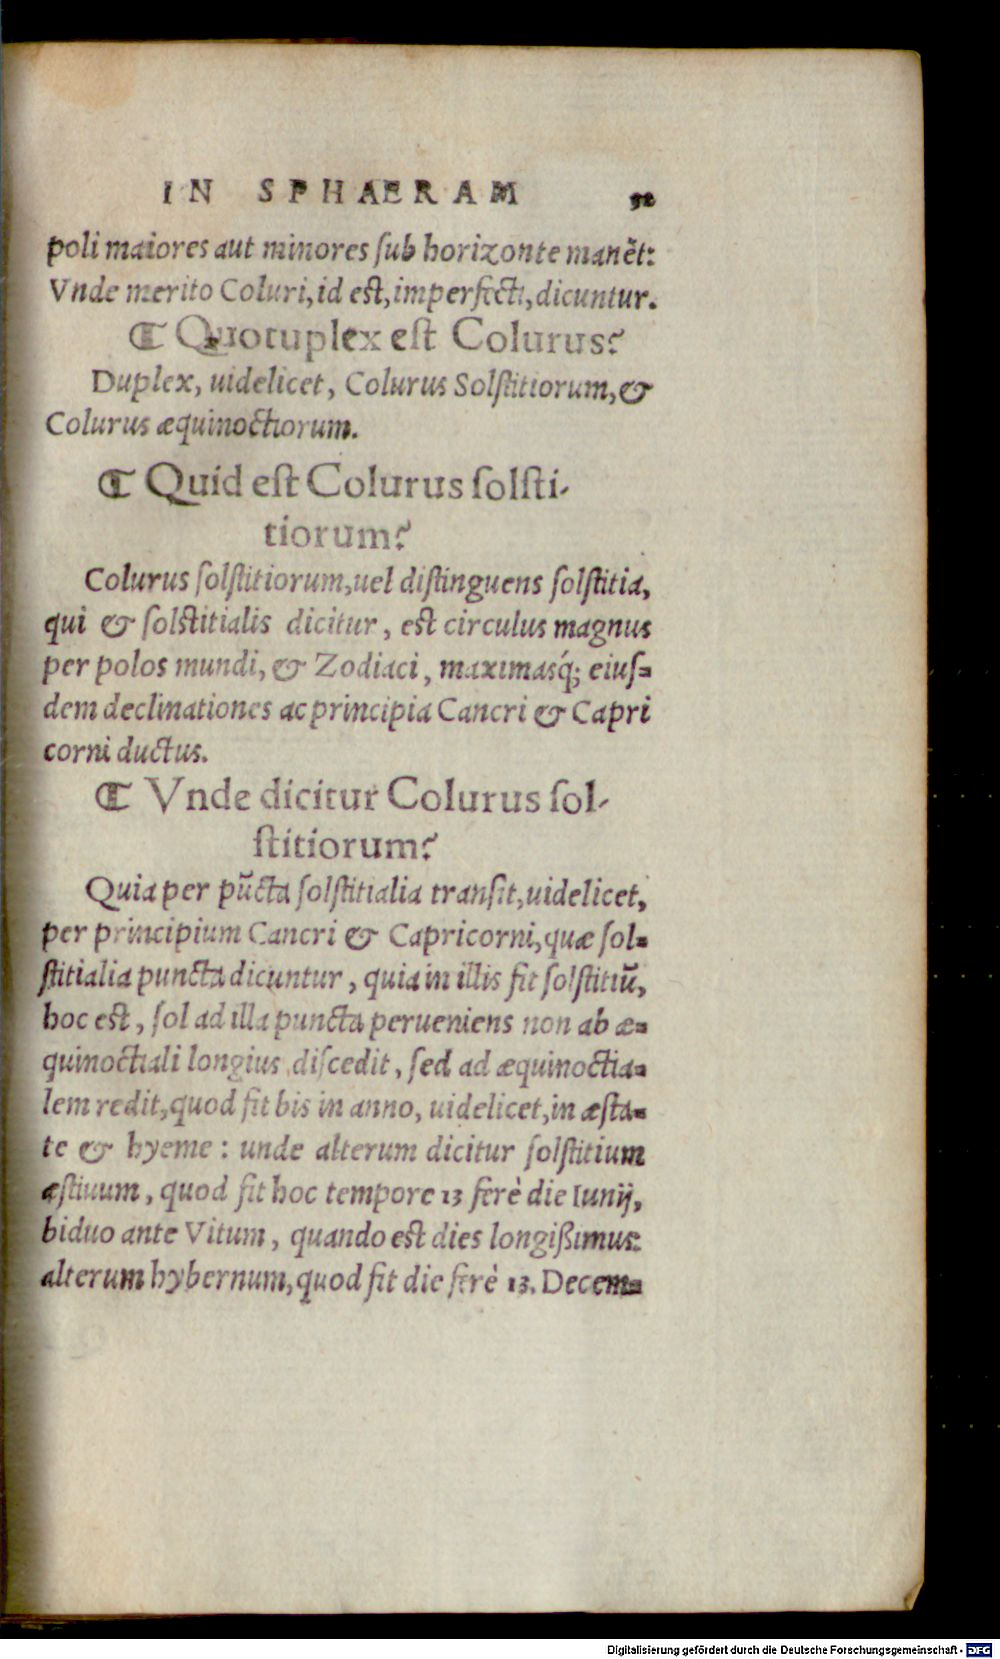 IN SPHAERAM 52
poli maiores aut minores ſub horizonte manẽt:
Vnde merito Coluri, id eſt, imperfecti, dicuntur.
⁋ Quotuplex eſt Colurus?
Duplex, uidelicet, Colurus Solſtitiorum, &
Colurus æquinoctiorum.
⁋ Quid eſt Colurus ſolſti-
tiorum?
Colurus ſolſtitiorum, uel diſtinguens ſolſtitia,
qui & ſolſtitialis dicitur, eſt circulus magnus
per polos mundi, & Zodiaci, maximasq́; eiuſ=
dem declinationes ac principia Cancri & Capri
corni ductus.
⁋ Vnde dicitur Colurus ſol-
ſtitiorum?
Quia per pũcta ſolſtitialia tranſit, uidelicet,
per principium Cancri & Capricorni, quæ ſol=
ſtitialia puncta dicuntur, quia in illis fit ſolſtitiũ,
hoc eſt, ſol ad illa puncta perueniens non ab æ=
quinoctiali longius diſcedit, ſed ad æquinoctia=
lem redit, quod fit bis in anno, uidelicet, in æſta=
te & hyeme: unde alterum dicitur ſolſtitium
æſtiuum, quod fit hoc tempore 13 ferè die Iunij,
biduo ante Vitum, quando eſt dies longißimus:
alterum hybernum, quod fit die ferè 13. Decem=
Digitalisierung gefördert durch die Deutsche Forschungsgemeinschaft - DFG